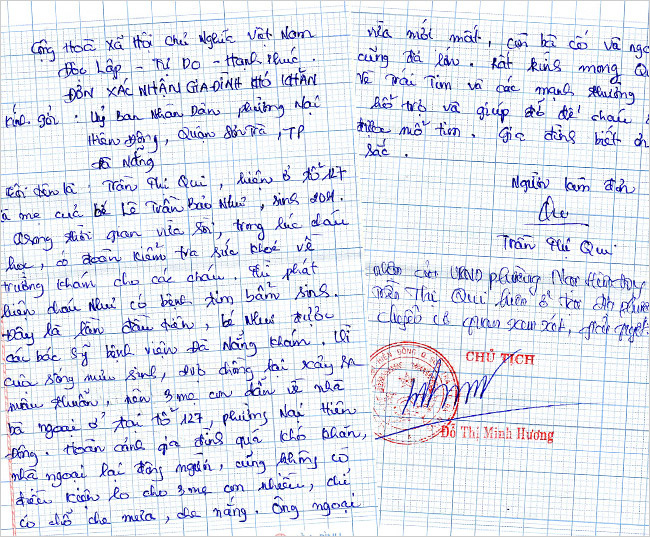 Cộng Hoà Xã Hội Chủ Nghĩa Việt Nam
Độc Lập - Tự Do - Hạnh Phúc.
ĐƠN XÁC NHẬN GIA ĐÌNH KHÓ KHĂN
Kính gởi: Uỷ Ban Nhân Dân, phường Nại
Hiên Đông, Quận Sơn Trà, TP
Đà Nẵng
Tôi tên là: Trần Thị Qui, hiện ở tổ 127
là mẹ của bé Lê Trần Bảo Như, sinh 2011.
Trong thời gian vừa rồi, trong lúc cháu
học, có đoàn kiểm tra sức khoẻ về
trường khám cho các cháu. Thì phát
hiện cháu Như có bệnh tim bẩm sinh.
Đây là lần đầu tiên, bé Như được
các bác sỹ bệnh viện Đà Nẵng khám. Vì
cuộc sống mưu sinh, chồng lại xảy ra
mâu thuẫn, nên 3 mẹ con dẫn về nhà
bà ngoại ở tại tổ 127, phường Nại Hiên
Đông. Hoàn cảnh gia đình quá khó khăn,
nhà ngoại lại đông người, cũng không có
điều kiện lo cho 3 mẹ con nhiều, chỉ
có chỗ che mưa, che nắng. Ông ngoại
vừa mới mất, còn bà cố và
cũng đã lớn. Rất kính mong
Vẽ Trái Tim và các mạnh thường
hỗ trợ và giúp đỡ để cháu
được mổ tim. Gia đình biết ơn
sắc.
Người làm đơn
Trần Thị Qui
UBND phường Nại Hiên Đông
Trần Thị Qui hiện ở tại
cơ quan xem xét, giải quyết.
CHỦ TỊCH
Đỗ Thị Minh Hương